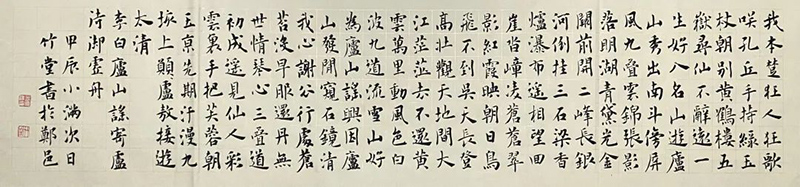 我本楚狂人狂歌
咲孔丘手持綠玉
杖朝別黃鶴樓五
嶽尋仙不辭遠一
生好入名山遊廬
山秀出南斗傍屏
風九疊雲錦張影
落明湖青黛光金
闕前開二峰長銀
河倒挂三石梁香
爐瀑布遙相望回
崖沓嶂淩蒼蒼翠
影紅霞映朝日鳥
飛不到吳天長登
高壯觀天地間大
江茫茫去不還黃
雲萬里動風色白
波九道流雪山好
為廬山謠興因廬
山發閑窺石鏡清
我心謝公行處蒼
苔沒早服還丹無
世情琴心三疊道
初成遙見仙人彩
雲裏手把芙蓉朝
玉京先期汗漫九
垓上願盧敖接遊
太清
李白廬山謠寄盧
侍御虛舟
甲辰小滿次日
竹堂書於鄭邑